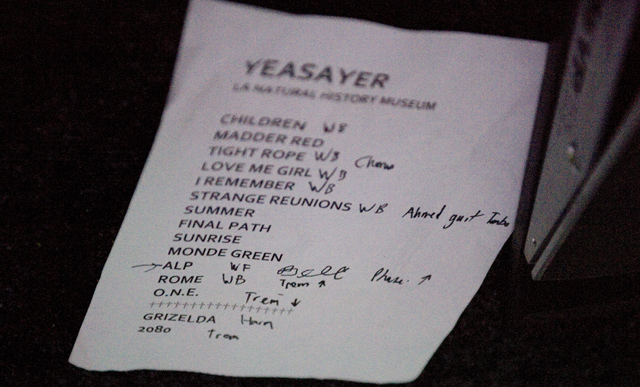 YEASAYER
LA NATURAL HISTORY MUSEUM
CHILDREN WB
MADDER RED
TIGHT ROPE WB
LOVE ME GIRL WB
I REMEMBER WB
STRANGE REUNIONS WB Ahmed
SUMMER
FINAL PATH
SUNRISE
MONDE GREEN
→ ALP WF Bell Phase ↑
ROME WB Trem ↑
O.N.E. Trem ↓
++++++++++++++++++++
GRIZELDA
2080 Trem